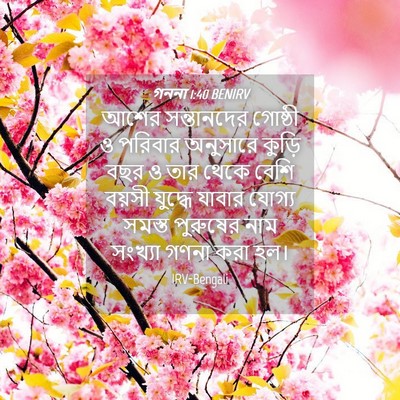 গননা 1:40 BENIRV
আশের সন্তানদের গোষ্ঠী
ও পরিবার অনুসারে কুড়ি
বছর ও তার থেকে বেশি
বয়সী যুদ্ধে যাবার যোগ্য
সমস্ত পুরুষের নাম
সংখ্যা গণনা করা হল।
IRV-Bengali